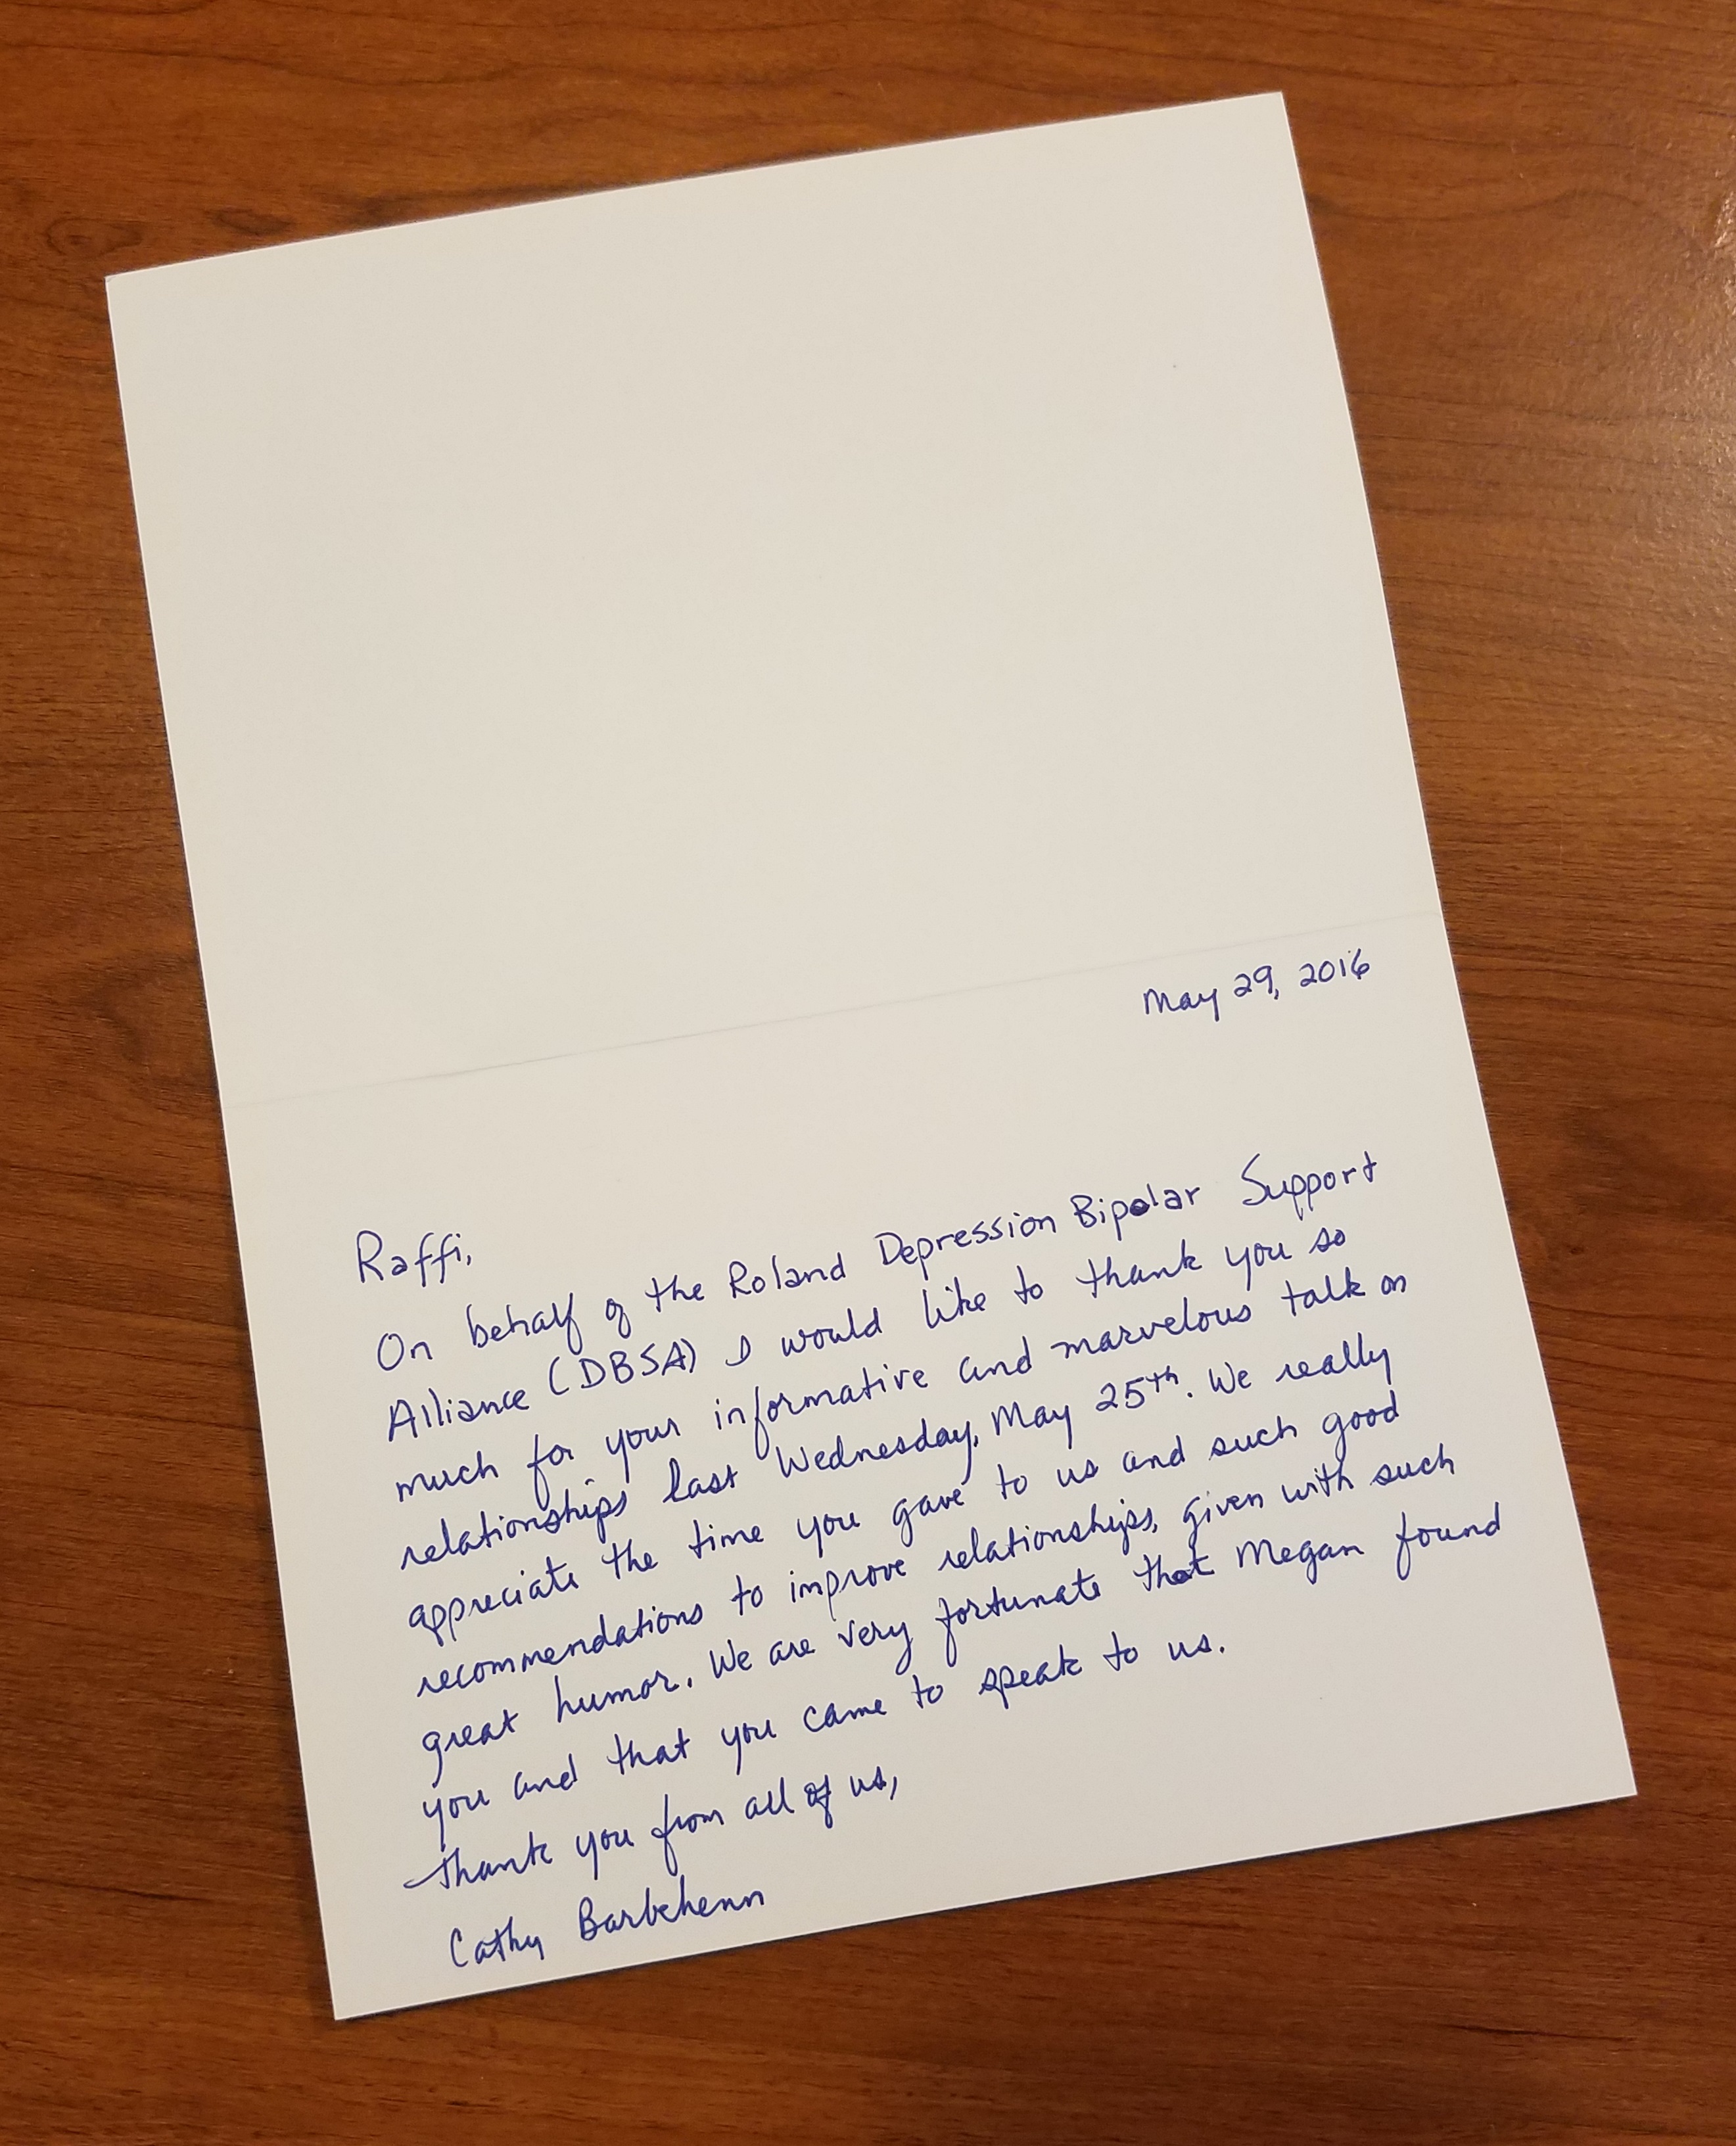 May 29, 2016
Raffi,
On behalf of the Roland Depression Bipolar Support
Alliance (DBSA) I would like to thank you so
much for your informative and marvelous talk on
relationships last Wednesday, May 25th. We really
appreciate the time you gave to us and such good
recommendations to improve relationships, given with such
great humor. We are very fortunate that Megan found
you and that you came to speak to us.
Thank you from all of us,
Cathy Barbehenn